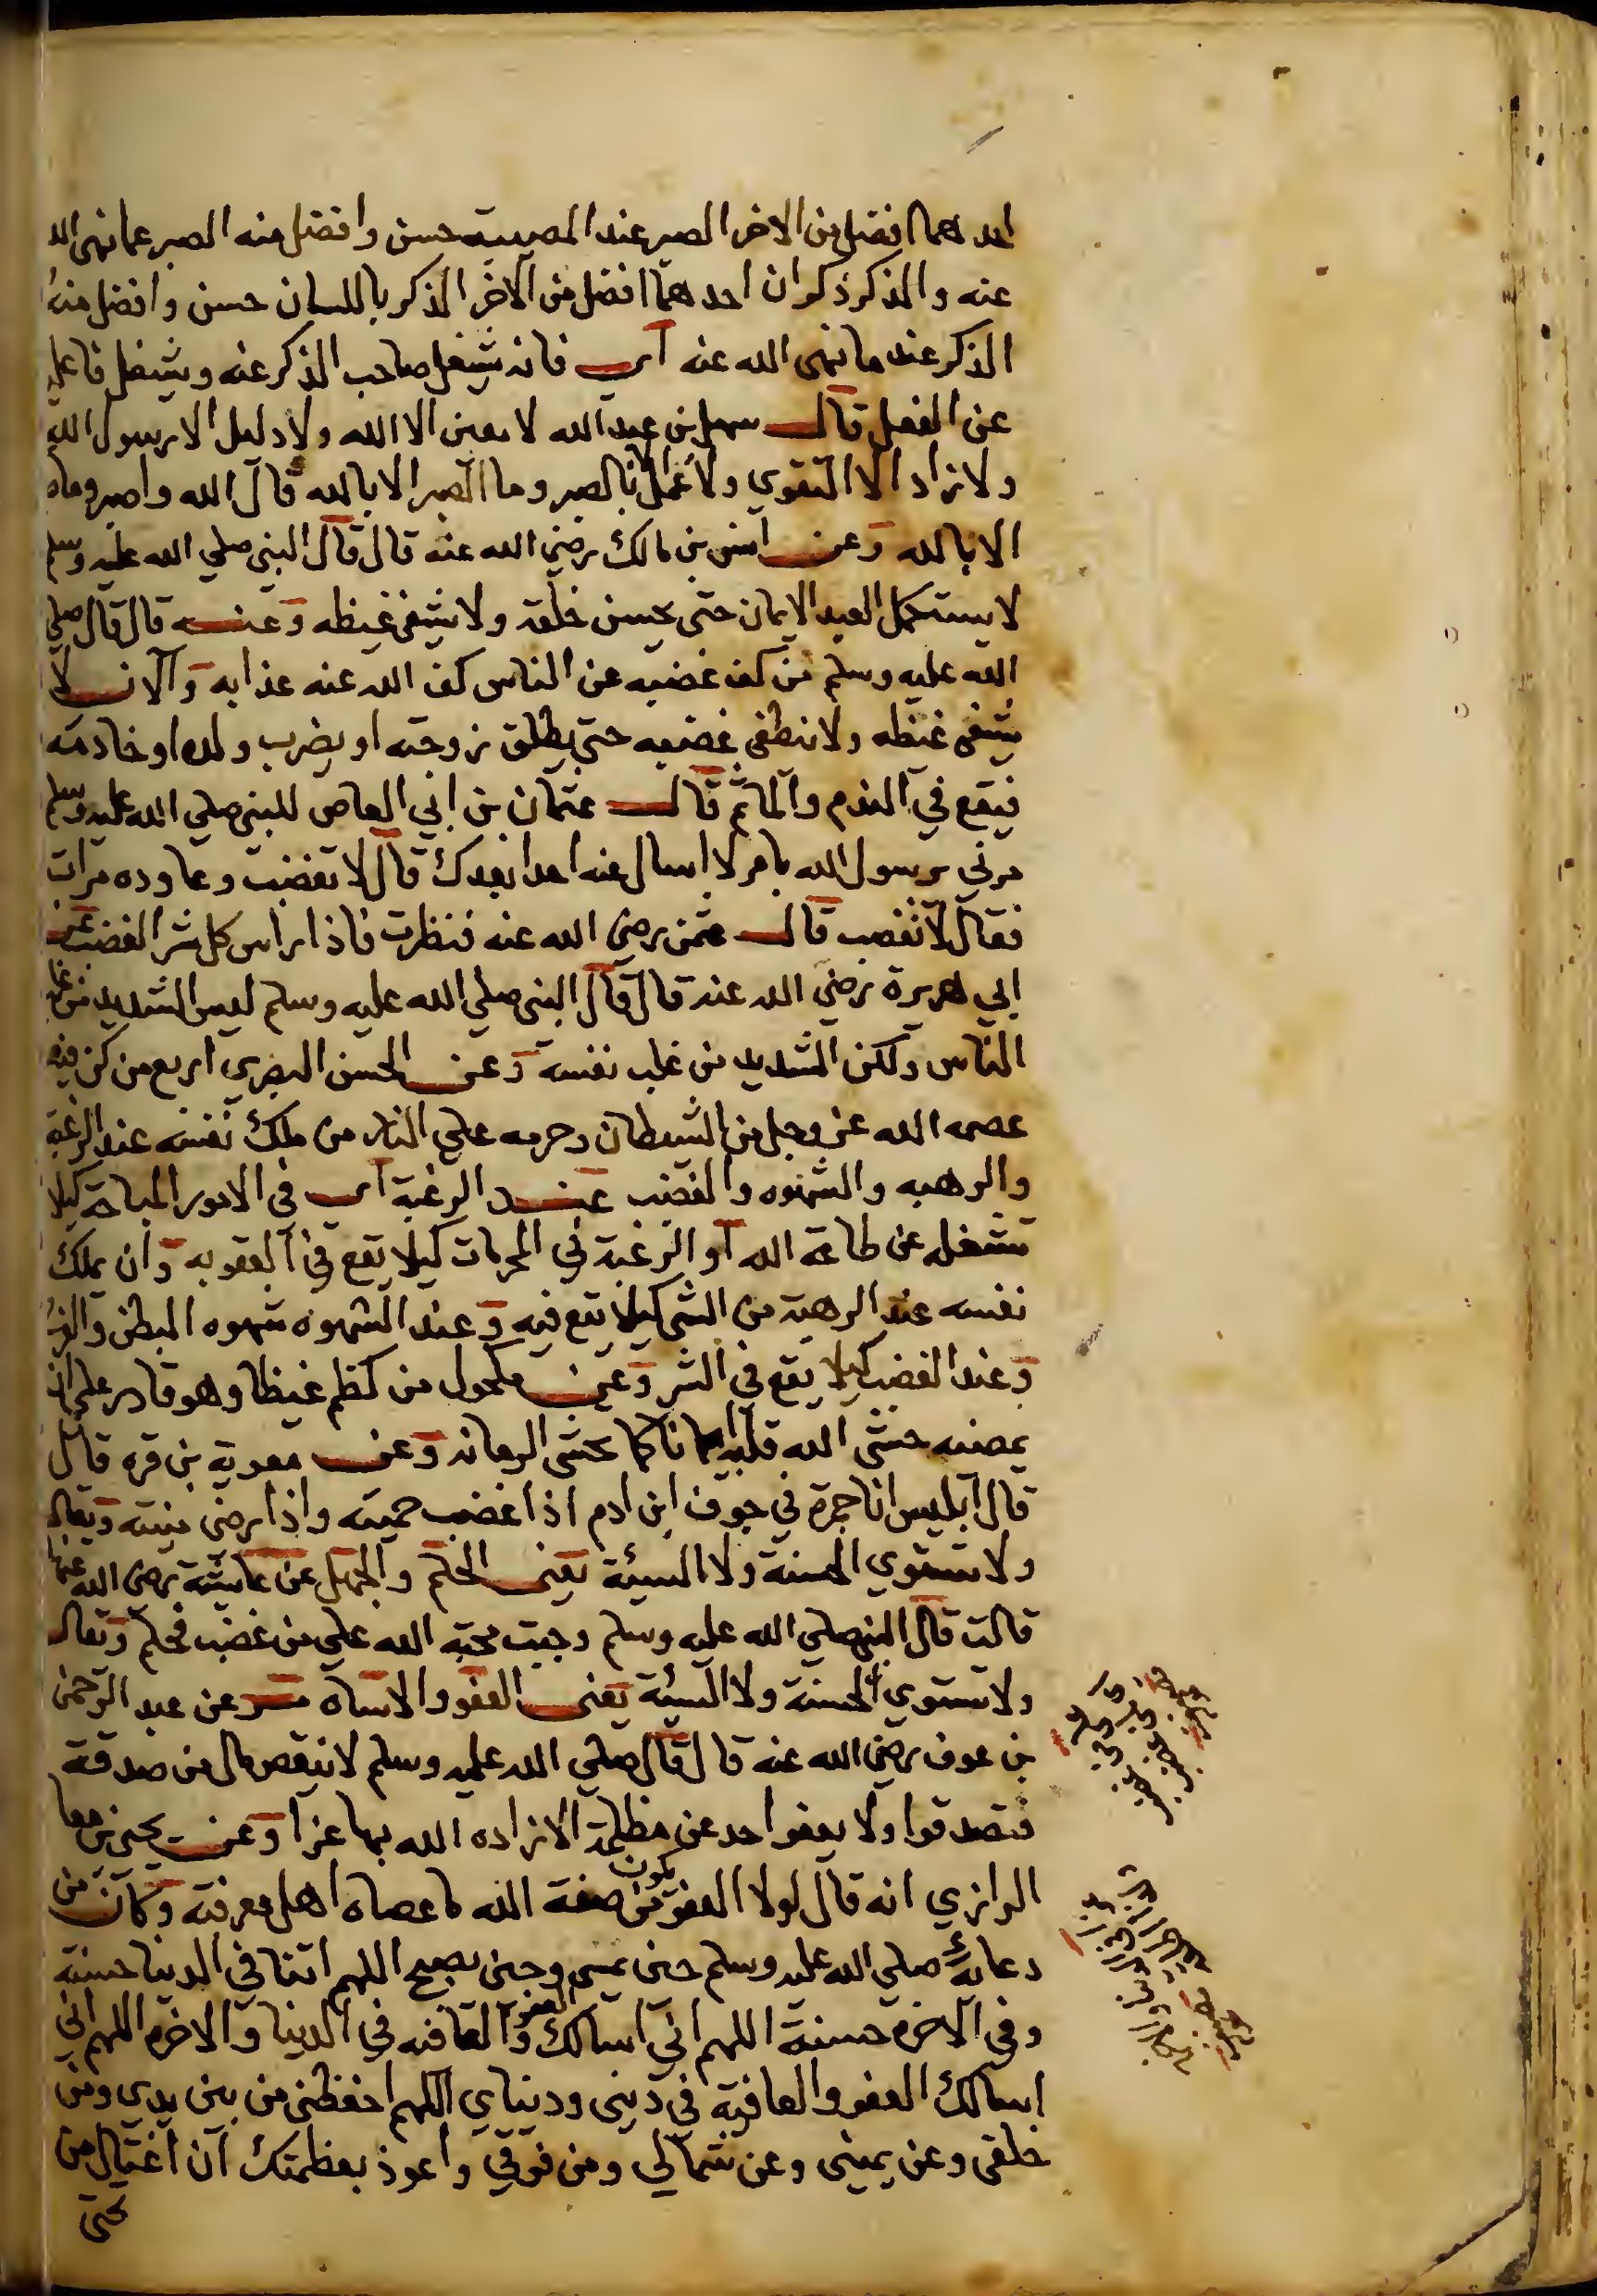 احدهما افضل من الاخر الصبر عند المصيبة حسن وافضل منه الصبر عما نهى الله
عنه والذكر ذكران احدهما افضل من الآخر الذكر باللسان حسن وافضل منه
الذكر عند ما نهى الله عنه اي فانه يشغل صاحب الذكر عنه ويشغل فاعله
عن الفعل قال سهل بن عبد الله لا معين الا الله ولا دليل الا رسول الله
ولا زاد الا التقوي ولا عمل الا بالصبر وما الصبر الا بالله قال الله واصبر وما صبرك
الا بالله وعن انس بن مالك رضي الله عنه قال قال النبي صلي الله عليه وسلم
لا يستكمل العبد الايمان حتى يحسن خلقه ولا يشفي غيظه وعنه قال قال صلي
الله عليه وسلم من كف غضبه عن الناس كف الله عنه عذابه والانسان لا
يشفى غيظه ولا ينطفي غضبه حتي يطلق زوجته او يضرب ولده او خادمه
فيقع في الندم والماثم قال عثمان بن ابي العاص للنبي صلي الله عليه وسلم
مرني يرسول الله بامر لا اسال عنه احدا بعدك قال لا تغضب وعاوده مرات
فقال لا تغضب قال عثمن رضي الله عنه فنظرت فاذا راس كل شر الغضب عن
ابي هريرة رضي الله عنه قال قال النبي صلي الله عليه وسلم ليس الشديد من غلب
الناس ولكن الشديد من غلب نفسه وعن الحسن البصري اربع من كن فيه
عصمه الله عز وجل من الشيطان وحرمه علي النار من ملك نفسه عند الرغبة
والرهبه والشهوه والغضب عند الرغبة اي في الامور المباحة كيلا
تشغله عن طاعة الله او الرغبة في المحرمات كيلا يقع في العقوبه وان يملك
نفسه عند الرهبة من الشي كيلا يقع فيه وعند الشهوه شهوه البطن والفرج
وعند الغضب كيلا يقع في الشر وعن مكحول من كظم غيظا وهو قادر على ان
يمضيه حشى الله قلبه ايمانا كما تحشى الرمانه وعن معوية بن قره قال
قال ابليس انا جمرة في جوف ابن ادم اذا غضب حميته واذا رضي منيته وتعالى
ولا تستوي الحسنة ولا السيئة يعنى الحلم والجهل عن عايشة رضي الله عنها
قالت قال النبي صلي الله عليه وسلم وجبت محبة الله علي من غضب فحلم وتعالى
ولا تستوي الحسنة ولا السيئة يعنى العفو والاساه عن عبد الرحمن
بن عوف رضي الله عنه قال قال صلي الله عليه وسلم لا ينقص مال من صدقة
فتصدقوا ولا يعفوا احد عن مظلمة الا زاده الله بها عزا وعن يحيى بن معاذ
الرازي انه قال لولا العفو يكون من صفة الله ما عصاه اهل معرفته وكان من
دعائه صلي الله عليه وسلم حين يمسي وحين يصبح اللهم اتنا في الدنيا حسنة
وفي الآخره حسنة اللهم اني اسالك العفو والعافيه في الدنيا والاخره اللهم اني
اسالك العفو والعافية في ديني ودنياي اللهم احفظني من بين يدي ومن
خلفى وعن يميني وعن شمالي ومن فوقي واعوذ بعظمتك ان اغتال من
تحتي